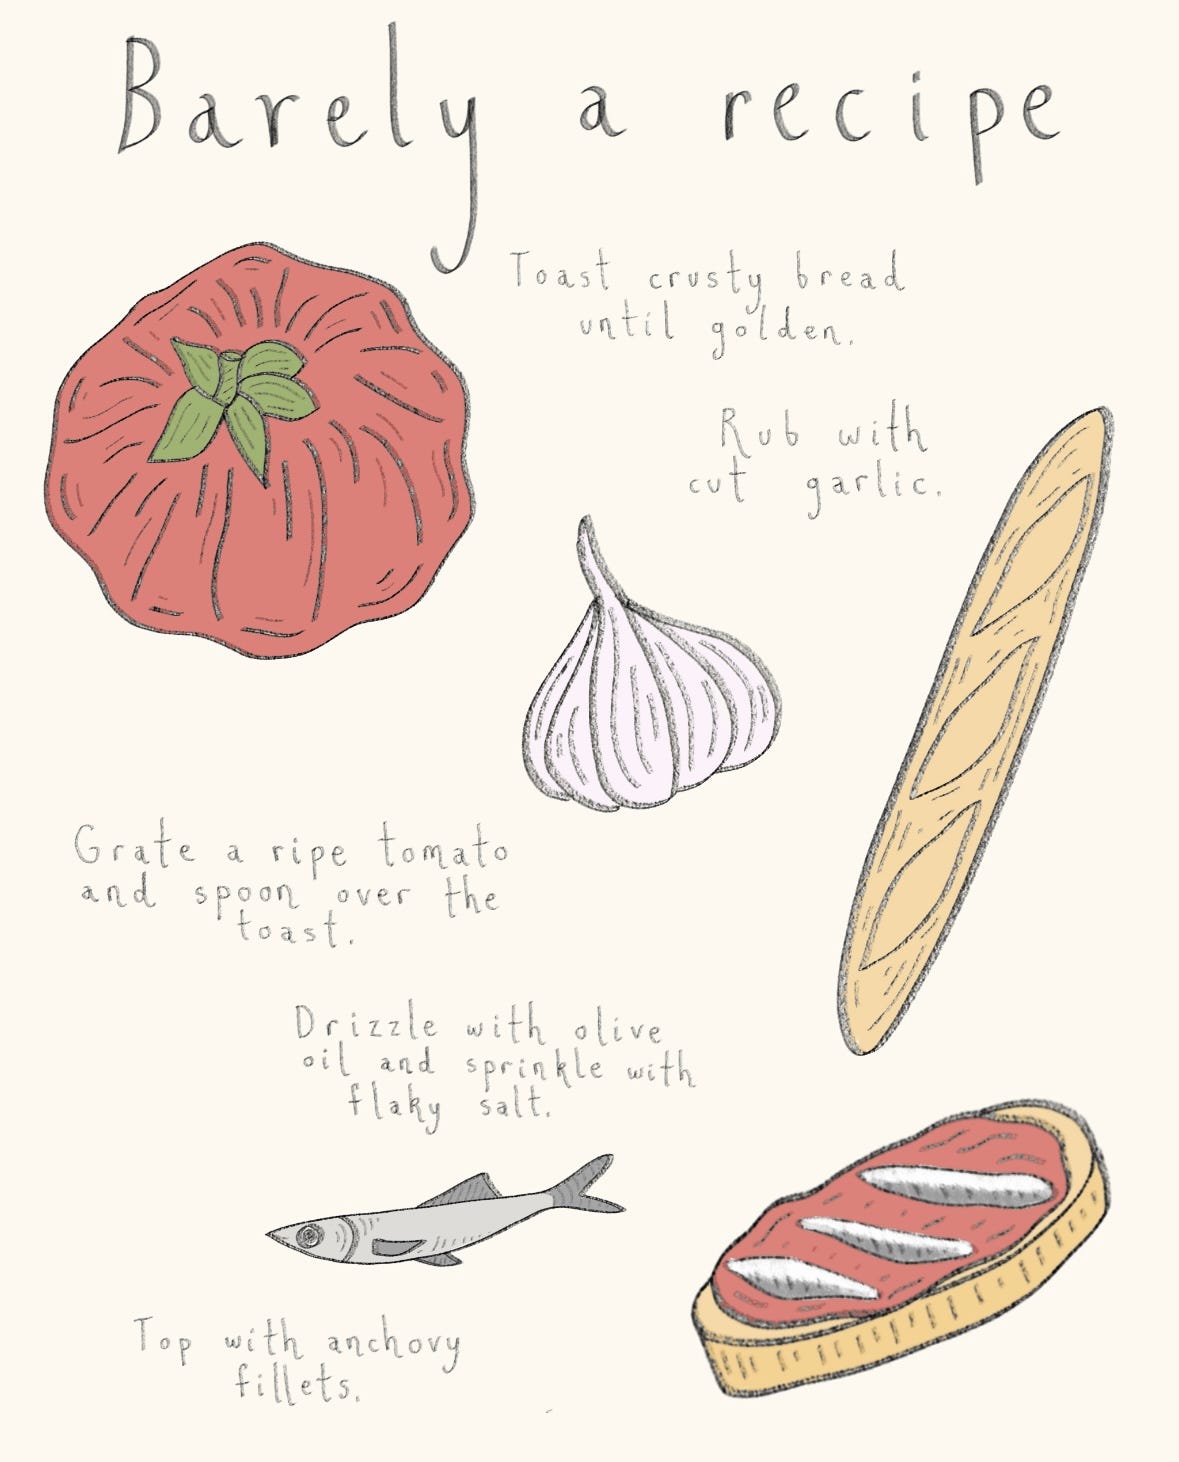 Barely a recipe
Toast crusty bread
until golden.
Rub with
cut garlic.
Grate a ripe tomato
and spoon over the
toast.
Drizzle with olive
oil and sprinkle with
flaky salt.
Top with anchovy
fillets.